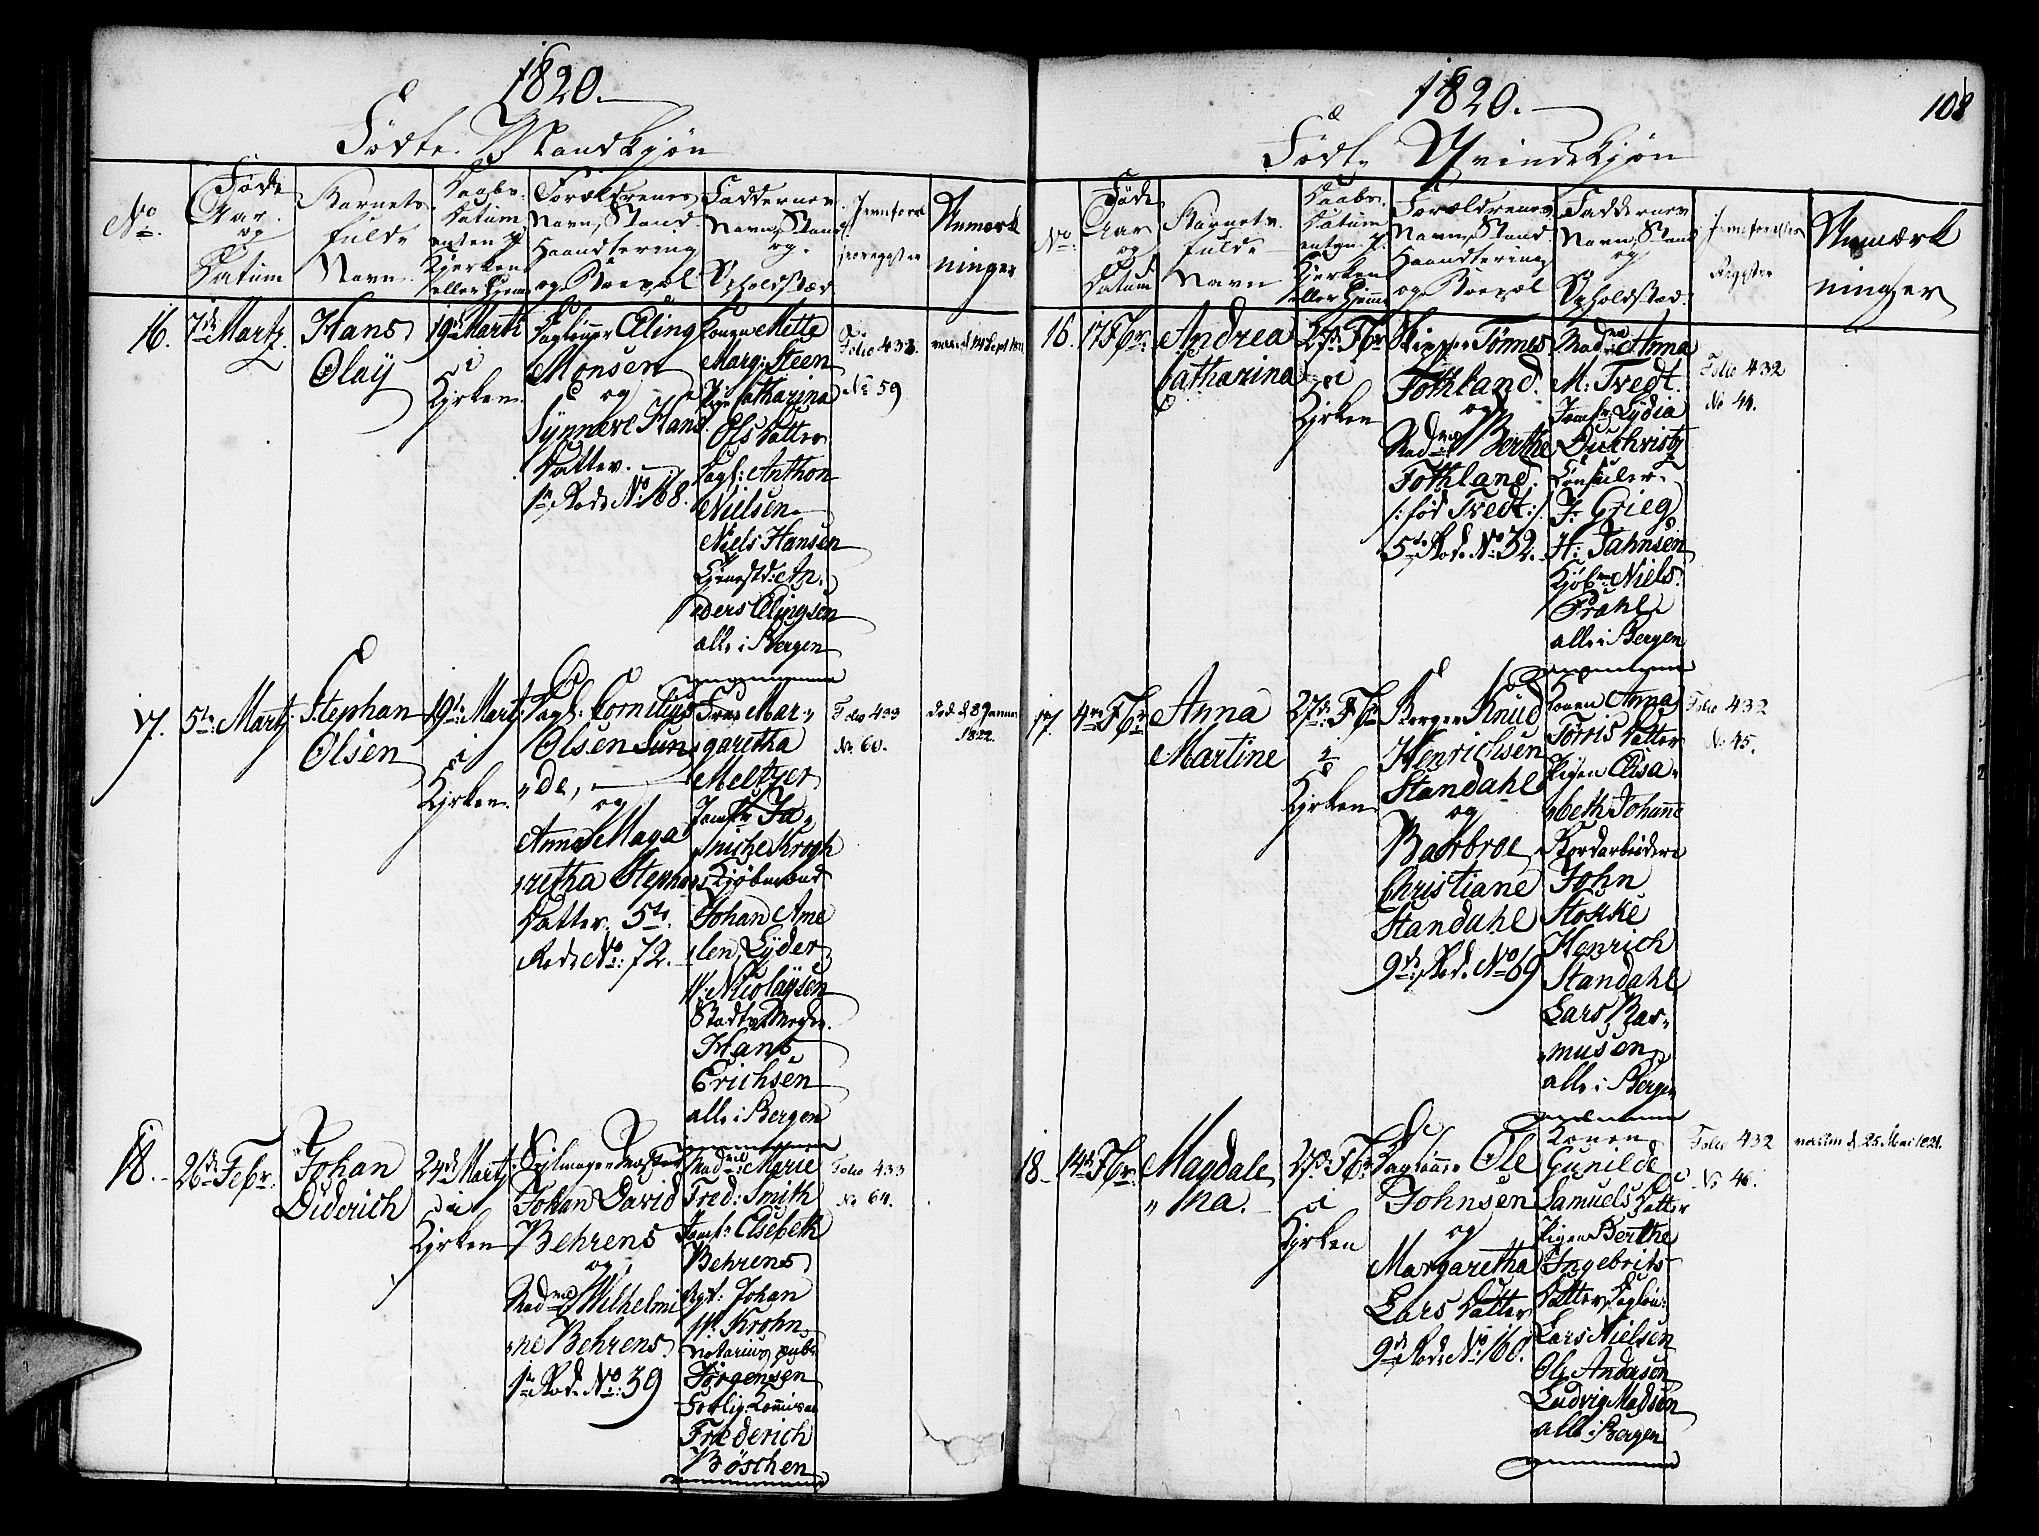 1820.
Fødte Mandkjøn
No.
Føde
Aar
og
Datum
Barnets
fulde
Navn
Daabs
Datum
enten i
Kirken
eller hjemme
Forældrenes
Navn, Stand
Haandtering
og Boepæl
Faddernes
Navn, Stand
og
Opholdsted
Anmærk
ninger
16.
7de Martz
Hans
Olaÿ
19de Marti
i
Kirken
Dagleÿer Elling
Monsen
og
Synneve Hans
Datter.
1ste Rode No. 168.
Konen Mette
Marg: Steen
Pige Catharina
Ols Datter
Dagl: Anthon
Nielsen
Niels Hansen
Tjenestd: An,
ders Elingsen
alle i Bergen
Folio 433.
No 59
vacc: d. 14 Sept 1821
17.
5te Martz
Stephan
Olsen
19de Martz
i
Kirken.
Dagl: Cornelius
Olsen Sun,
"de,
og
Anna Maga
retha Stephans
Datter. 5te
Rode No: 72.
Frue Mar,,
garetha
Meltzer
Jomfr Ja,
niche Krogh
Kjøbmænd
Johan Ame
len, Lÿder
W. Nicolaÿsen
Hans
Erichsen
alle i Bergen
Folio 433
No 60.
1822.
18.
26de Febr.
Johan
Diderich
24de Martz
i
Kirken
Seilmagermester
Johan David
Behrens
og
Madme Wilhelmi
ne Behrens.
1ste Rode No: 39
Madme: Marie
Fred: Smith
Jomfr: Elsebeth
Behrens
Agt: Johan
W. Krohn
Notarius publ:
Jørgensen
Forlig: Kommisær
Fræderich
Böschen
Folio 433
No 64.
1820.
108
Fødte Qvindekjøn
No.
Føde
Aar
og
Datum
Barnets
fulde
Navn
Daabs
Datum
enten i
Kirken
eller hjemme
Forældrenes
Navn, Stand
Haandtering
og Boepæl
Faddernes
Navn, Stand
og
Opholdsted.
Jevnførelses
Register
Anmærk
ninger
16.
17 Fbr.
Andrea
Catharina
27de Fbr
i
Kirken
Skipper Tønnes
Fothland.
og
Madme Berthe
Fothland.
/: fød Tvedt :/
5te Rode No 32.
Madme Anna
M: Tvedt
Jomfr Lÿdia
Duchristz
Consuler
J. Grieg
H: Jahnsen
Kjøbm: Niels
Prahl
alle i Bergen
Folio 432
No 44.
17.
4de Fbr
Anna
Martine
27de Fbr
i
Kirken
Borger Knud
Henrichsen
Standahl
og
Barbroe
Christiane
Standahl
9de Rode No 69
Konen Anna
Torris Datter
Pigen Elisa,
beth Johanne
John
Stokke
Henrich
Standahl
Lars Ras,,
musen
alle i Bergen
Folio 432
No 45.
18
14de Fbr.
Magdale
"na.
27de Fbr
i
Kirken
Dagleÿer Ole
Johnsen
og
Margaretha
Lars Datter
9de Rode No 160.
Konen
Gunilde
Samuels Datter
Pigen Berthe
Ingebrits
Datter, Dagløn:
Lars Nielsen
Ole Andersen
Ludvig Madsen
alle i Bergen
Folio 432
No 46.
vaccin d. 25 Mai 1821.